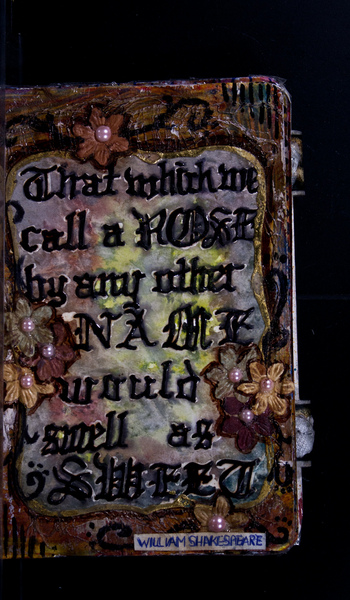 That which we
call a ROSE
by any other
NAME
would
smell as
SWEET
WILLIAM SHAKESPEARE